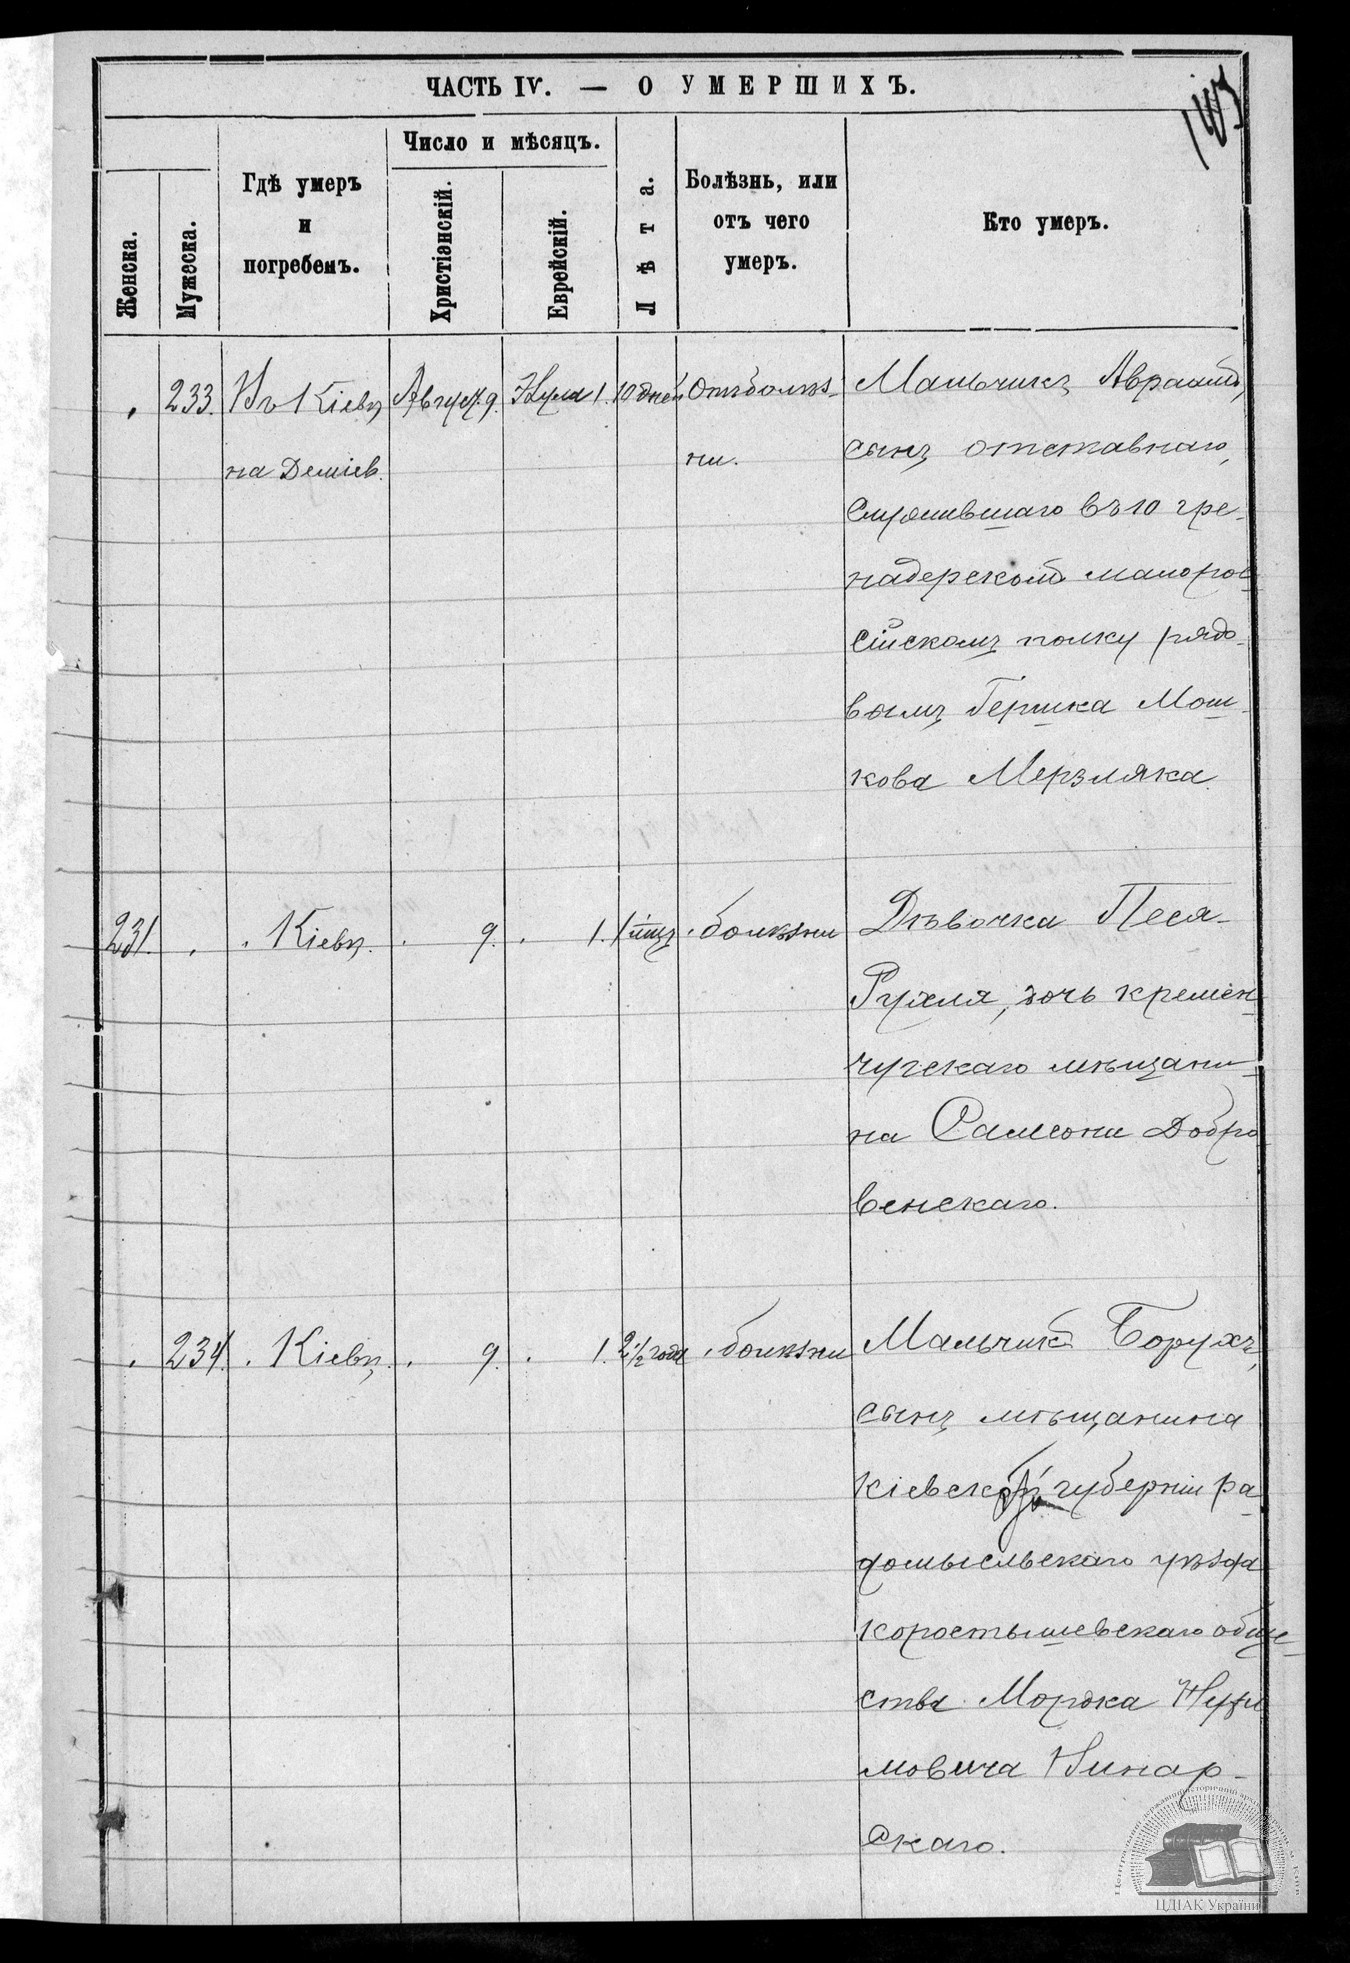 ЧАСТЬ IV. — О УМЕРШИХЪ.
Женска.
Мужеска.
Гдѣ умеръ
и
погребенъ.
Число и мѣсяцъ.
Христіянскій.
Еврейскій.
Лѣта.
Болѣзнь, или
отъ чего
умеръ.
Кто умеръ.
233. Въ Кіевѣ Август. 9. 1. 10 дней Отъ болѣз-
на Деміев. ни.
Мальчикъ Авраамъ,
сынъ отставнаго,
служившаго въ 10 гре-
надерскомъ малорос-
сійскомъ полку рядо-
вымъ Гершка Мош-
кова Мерзляка.
231. Кіевѣ. 9. 1. 1 мѣц. болѣзни
Дѣвочка Песя-
Рухля, дочь кремен-
чугскаго мѣщани-
на Самсона Добро
венскаго.
234. Кіевѣ. 9. 1. 2 1/2 года болѣзни
Мальчикъ Борухъ,
сынъ мѣщанина
Кіевской губерніи Ра-
домысльскаго уѣзда
Коростышевскаго обще-
ства Мордка
мовича
скаго.
ЦДІАК України